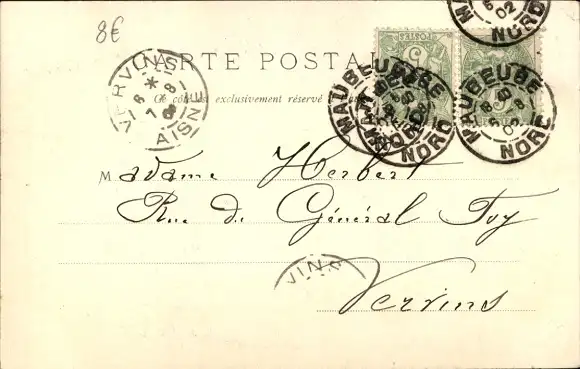 8€
CARTE POSTALE
Ce côté est exclusivement réservé à l'adresse
VERVINS
6 * 8
7
AISNE
MAUBEUGE
NORD
MAUBEUGE
NORD
02
NORD
POSTES
5
5
Madame Herbert
Rue du Général Foy
VINS
Vervins